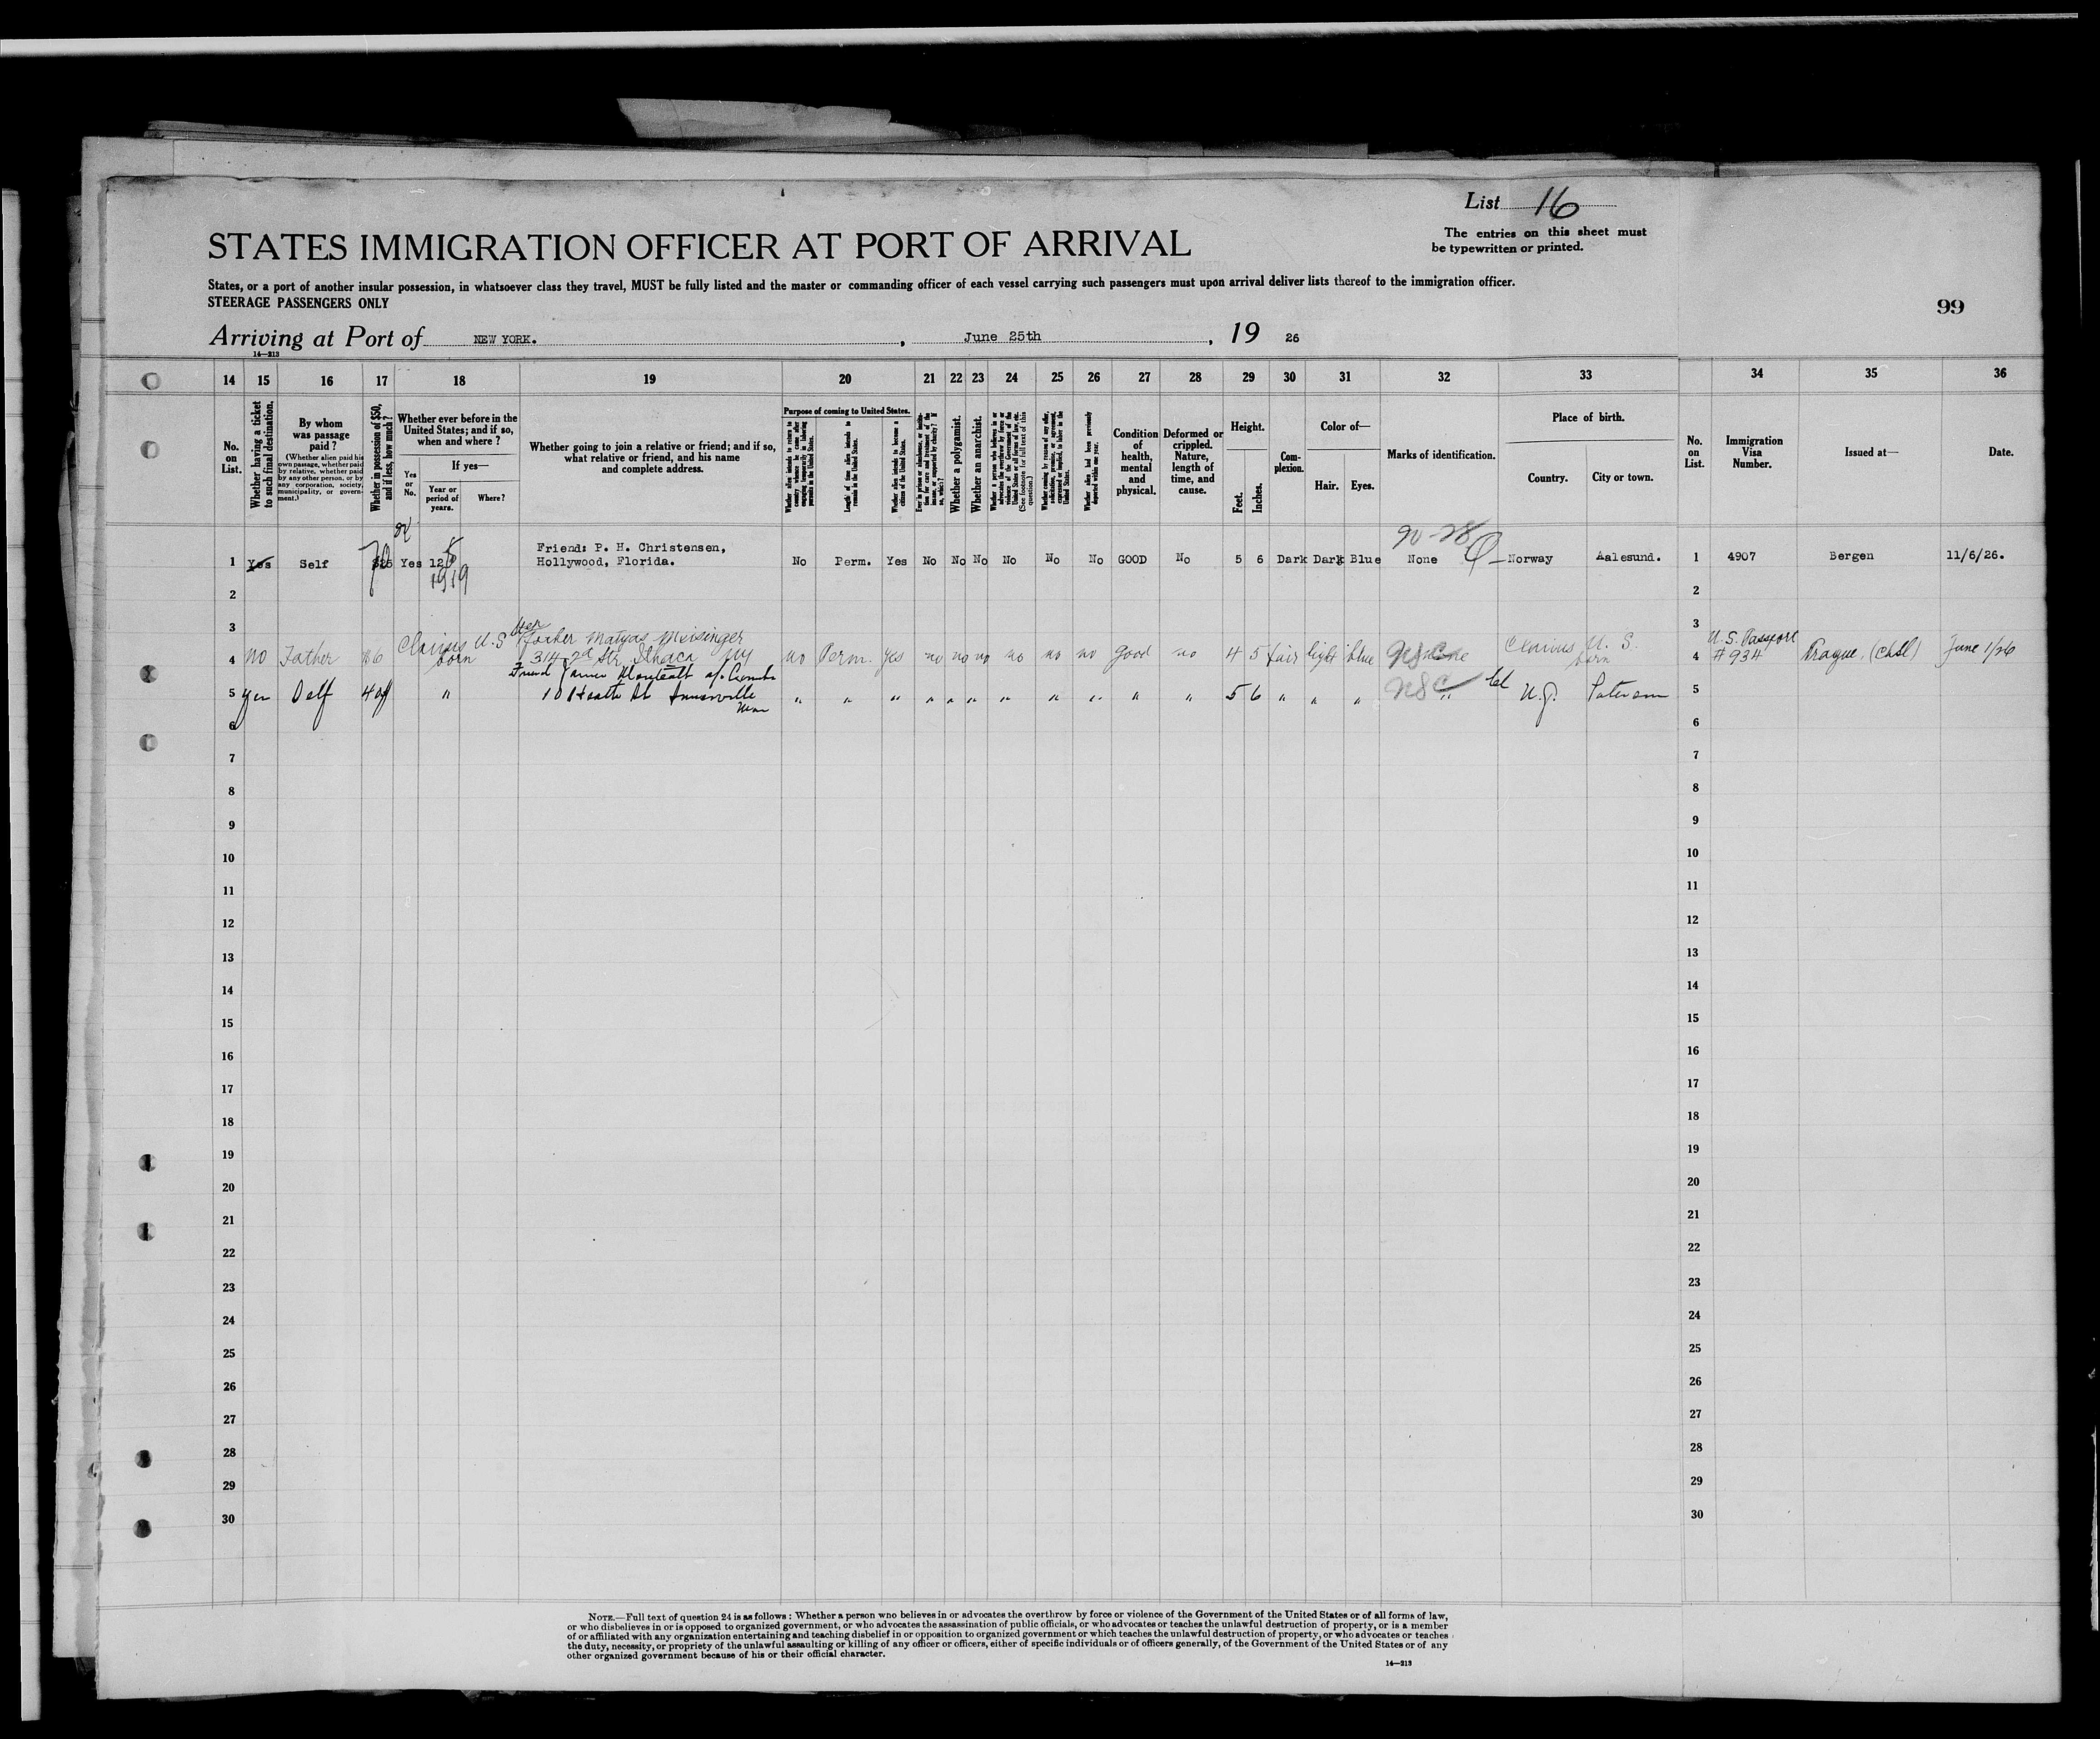 List 16
The entries on this sheet must
be typewritten or printed.
STATES IMMIGRATION OFFICER AT PORT OF ARRIVAL
States, or a port of another insular possession, in whatsoever class they travel, MUST be fully listed and the master or commanding officer of each vessel carrying such passengers must upon arrival deliver lists thereof to the immigration officer.
STEERAGE PASSENGERS ONLY
99
Arriving at Port of NEW YORK. , June 25th , 19 26
14—213
14 15 16 17 18 19 20 21 22 23 24 25 26 27 28 29 30 31 32 33 34 35 36
No. on List.
Whether having a ticket to such final destination.
By whom was passage paid?
(Whether alien paid his own passage, whether paid by relative, whether paid by any other person, or by any corporation, society, municipality, or government.)
Whether in possession of $50, and if less, how much?
Whether ever before in the United States; and if so, when and where?
Yes or No.
If yes—
Year or period of years.
Where?
Whether going to join a relative or friend; and if so, what relative or friend, and his name and complete address.
Purpose of coming to United States.
Whether alien intends to return to country whence he came after engaging temporarily in laboring pursuits in the United States.
Length of time alien intends to remain in the United States.
Whether alien intends to become a citizen of the United States.
Ever in prison or almshouse, or institution for care and treatment of the insane, or supported by charity? If so, which?
Whether a polygamist.
Whether an anarchist.
(See footnote for full text of this question.)
Whether alien had been previously deported within one year.
Condition of health, mental and physical.
Deformed or crippled. Nature, length of time, and cause.
Height.
Feet.
Inches.
Complexion.
Color of—
Hair.
Eyes.
Marks of identification.
Place of birth.
Country.
City or town.
No. on List.
Immigration Visa Number.
Issued at—
Date.
1 Yes Self Yes 12 1919 Friend: P. H. Christensen, Hollywood, Florida. No Perm. Yes No No No No No No GOOD No 5 6 Dark Dark Blue None Norway Aalesund. 1 4907 Bergen 11/6/26.
2 2
3 3
4 no Father Claims U.S born father Matyas Meisinger 314 2d Str. Ithaca NY no Perm. yes no no no no no no good no 4 5 fair light blue Claims U. S. born 4 U.S. Passport # 934 Prague, June 1/26
5 yes Self 40 " Friend James 10 Heath St " " " " " " " " " " " 5 6 " " " NSC N.J. Paterson 5
6 6
7 7
8 8
9 9
10 10
11 11
12 12
13 13
14 14
15 15
16 16
17 17
18 18
19 19
20 20
21 21
22 22
23 23
24 24
25 25
26 26
27 27
28 28
29 29
30 30
NOTE.—Full text of question 24 is as follows: Whether a person who believes in or advocates the overthrow by force or violence of the Government of the United States or of all forms of law,
or who disbelieves in or is opposed to organized government, or who advocates the assassination of public officials, or who advocates or teaches the unlawful destruction of property, or is a member
of or affiliated with any organization entertaining and teaching disbelief in or opposition to organized government or which teaches the unlawful destruction of property, or who advocates or teaches
the duty, necessity, or propriety of the unlawful assaulting or killing of any officer or officers, either of specific individuals or of officers generally, of the Government of the United States or of any
other organized government because of his or their official character.
14—213